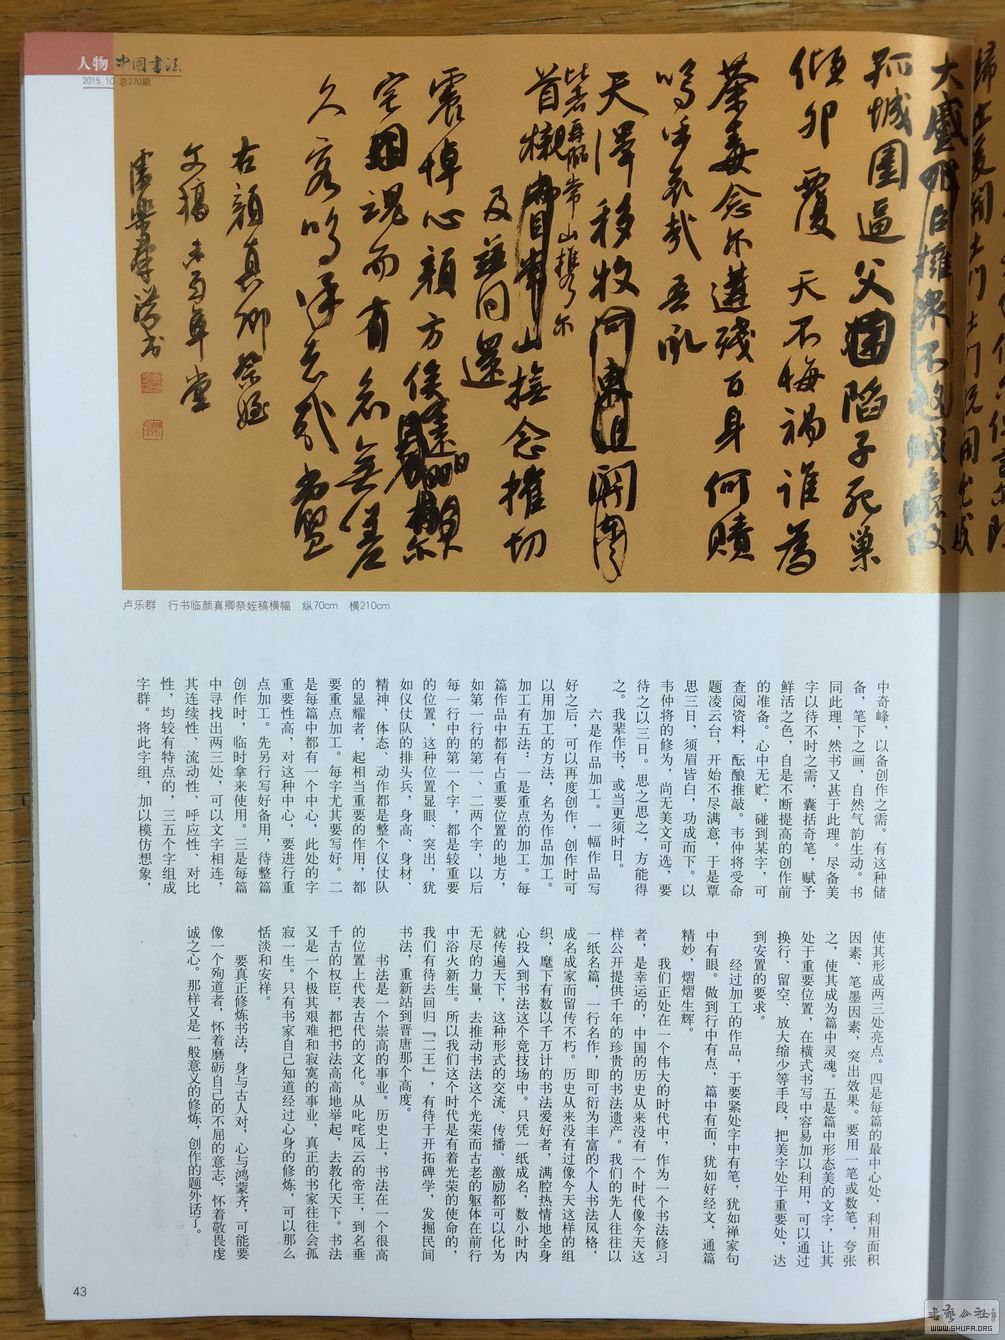 人物 中国书法
2015.10 总270期
孤城圍逼父陷子死巢
傾卵覆天不悔禍誰為
荼毒念尔遘殘百身何贖
嗚乎哀哉吾承
天澤移牧
比者再陷常山攜尔
首櫬及茲同還
撫念摧切
震悼心顏方俟遠日
宅魂而有知無嗟
久客嗚呼哀哉尚饗
右顏真卿祭姪
文稿
盧樂群
卢乐群　行书临颜真卿祭姪稿横幅　纵70cm　横210cm
中奇峰，以备创作之需。有这种储
备，笔下之画，自然气韵生动。书
同此理，然书又甚于此理。尽备美
字以待不时之需，囊括奇笔，赋予
鲜活之色，自是不断提高的创作前
的准备。心中无贮，碰到某字，可
查阅资料，酝酿推敲。韦仲将受命
题凌云台，开始不尽满意，于是覃
思三日，须眉皆白，功成而下。以
韦仲将的修为，尚无美文可选，要
待之以三日。思之思之，方能得
之。我辈作书，或当更须时日。
六是作品加工。一幅作品写
好之后，可以再度创作，创作时可
以用加工的方法，名为作品加工。
加工有五法：一是重点的加工。每
篇作品中都有占重要位置的地方，
如第一行的第一、二两个字，以后
每一行中的第一个字，都是较重要
的位置，这种位置显眼、突出，犹
如仪仗队的排头兵，身高、身材、
精神、体态、动作都是整个仪仗队
的显耀者，起相当重要的作用，都
要重点加工。每字尤其要写好。二
是每篇中都有一个中心，此处的字
重要性高，对这种中心，要进行重
点加工。先另行写好备用，待整篇
创作时，临时拿来使用。三是每篇
中寻找出两三处，可以文字相连，
其连续性、流动性、呼应性、对比
性，均较有特点的，三五个字组成
字群。将此字组，加以模仿想象，
使其形成两三处亮点。四是每篇的最中心处，利用面积
因素、笔墨因素，突出效果。要用一笔或数笔，夸张
之，使其成为篇中灵魂。五是篇中形态美的文字，让其
处于重要位置，在横式书写中容易加以利用，可以通过
换行、留空、放大缩少等手段，把美字处于重要处，达
到安置的要求。
经过加工的作品，于要紧处字中有笔，犹如禅家句
中有眼。做到行中有点，篇中有面，犹如好经文，通篇
精妙，熠熠生辉。
我们正处在一个伟大的时代中，作为一个书法修习
者，是幸运的，中国的历史从来没有一个时代像今天这
样公开提供千年的珍贵的书法遗产。我们的先人往往以
一纸名篇，一行名作，即可衍为丰富的个人书法风格，
成名成家而留传不朽。历史从来没有过像今天这样的组
织，麾下有数以千万计的书法爱好者，满腔热情地全身
心投入到书法这个竞技场中。只凭一纸成名，数小时内
就传遍天下，这种形式的交流、传播、激励都可以化为
无尽的力量，去推动书法这个光荣而古老的躯体在前行
中浴火新生。所以我们这个时代是有着光荣的使命的，
我们有待去回归『二王』，有待于开拓碑学，发掘民间
书法，重新站到晋唐那个高度。
书法是一个崇高的事业。历史上，书法在一个很高
的位置上代表古代的文化。从叱咤风云的帝王，到名垂
千古的权臣，都把书法高高地举起，去教化天下。书法
又是一个极其艰难和寂寞的事业，真正的书家往往会孤
寂一生。只有书家自己知道经过心身的修炼，可以那么
恬淡和安祥。
要真正修炼书法，身与古人对，心与鸿蒙齐，可能要
像一个殉道者，怀着磨砺自己的不屈的意志，怀着敬畏虔
诚之心。那样又是一般意义的修炼，创作的题外话了。
43
WWW.SHUFA.ORG